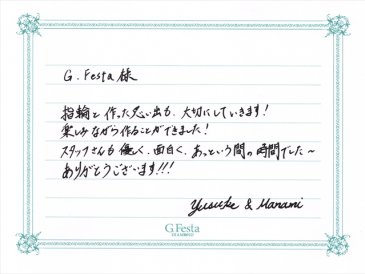 G.Festa 様
指輪と作った思い出も、大切にしていきます!
楽しみながら作ることができました!
スタッフさんも優しく、面白く、あっという間の時間でした〜
ありがとうございます!!!
Yusuke & Manami
G.Festa